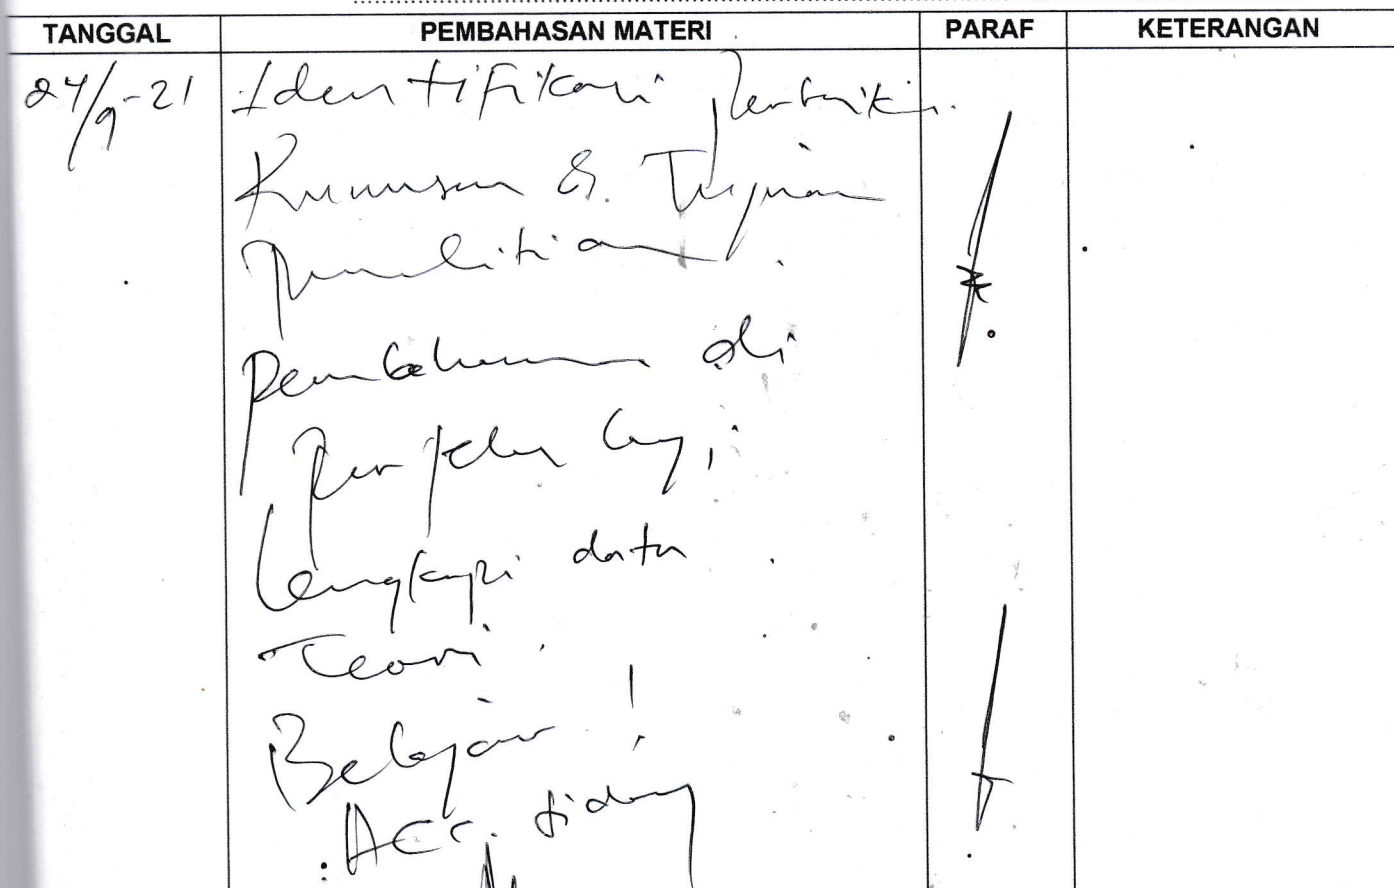 TANGGAL PEMBAHASAN MATERI PARAF KETERANGAN
24/9-21 Identifikasi perbaiki.
Rumusan & Tujuan
Penelitian.
Pembahasan di
perjelas lagi,
Lengkapi data
Teori.
Belajar!
ACC. sidang